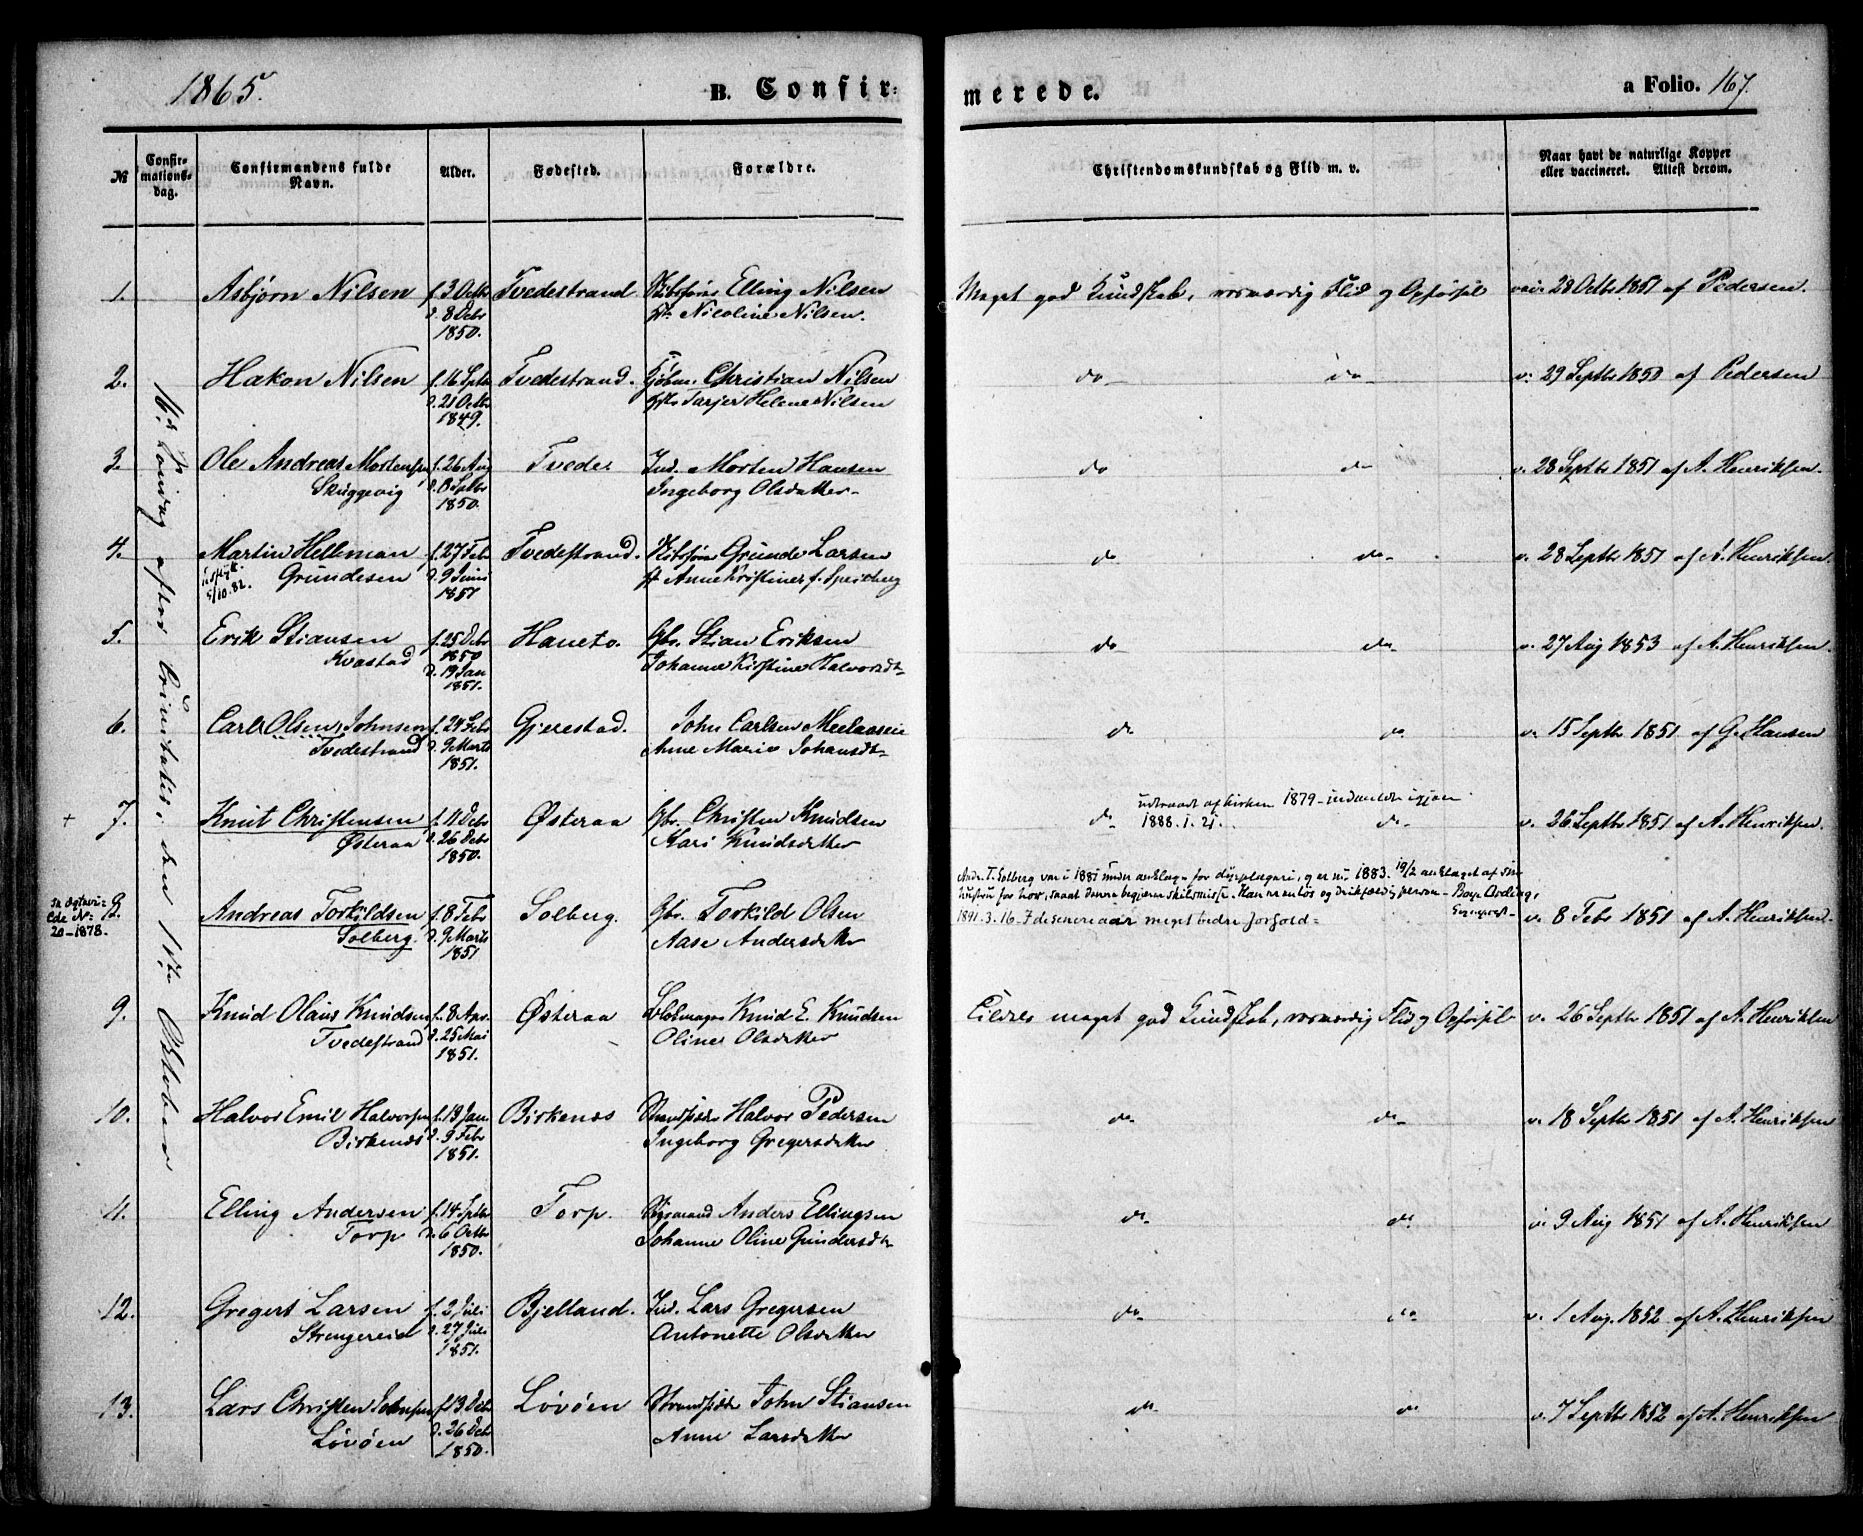 1865.
B. Confir-
merede.
a Folio. 167.
№
Confir-
mations-
dag.
Confirmandens fulde
Navn.
Alder.
Fødested.
Forældre.
Christendomskundskab og Flid m. v.
Naar havt de naturlige Kopper
eller vaccineret. Attest derom.
16de Søndag efter Trinitatis, den 1ste Oktober
1. Asbjørn Nilsen f. 3 Octbr Tvedestrand Skibsfører Elling Nilsen Meget god Kundskab, rosværdig Flid og Opførsel vac. 28 Octbr 1851 af Pedersen.
d. 8 Decbr Nicoline Nilsen.
1850.
2. Hakon Nilsen f. 16 Septbr Tvedestrand. Kjøbm. Christian Nilsen do do v. 29 Septbr 1850 af Pedersen
d. 21 Octbr Tarjer Helene Nilsen
1849.
3. Ole Andreas Mortensen f. 26 Aug Tvede. Ind. Morten Hansen do do v. 28 Septbr 1851 af A. Henriksen.
Skuggevig d. 8 Septbr Ingeborg Olsdatter
1850.
4. Martin Helleman f. 27 Feb Tvedestrand. Skibsfører Grunde Larsen do do v. 28 Septbr 1851 af A. Henriksen.
Grundesen d. 9 Juni Anne Kristine f. Speilberg
5/10.82. 1851
5. Erik Stiansen f. 25 Decbr Haneto. Gbr. Stian Eriksen do do v. 27 Aug 1853 af A. Henriksen.
Kvastad 1850 Johanne Kirstine Halvorsdtr
d. 19 Jan
1851.
6. Carl Olsen, Johnsen f. 24 Feb Gjerestad. John Carlsen do do v. 15 Septbr 1851 af G. Hansen
Tvedestrand d. 9 Marts Anne Marie Johansdtr
1851.
udtraadt af kirken 1879 – indmeldt igjen
+ 7. Knut Christensen f. 11 Decbr Østeraa Gbr. Christen Knudsen do 1888. 1. 21. do v. 26 Septbr 1851 af A. Henriksen.
Østeraa d. 26 Decbr Kari Knudsdatter
1850.
Andr. T. Solberg var i 1881 under anklage for og er nu 1883. 19/2 anklaget af sin
hustru for hor, saaat denne begjærer skilsmisse. Han er enløs og drikfældig person – Boye Ording,
Sogneprest –
8. Andreas Torkildsen f. 8 Febr Solberg. Gbr. Torkild Olsen 1891. 3. 16 – I de senere aar meget bedre forhold = v. 8 Febr 1851 af A. Henriksen.
20–1878. Solberg. d. 9 Marts Aase Andersdatter
1851
9. Knud Olaus Knudsen f. 8 Apr. Østeraa Knud E. Knudsen meget god Kundskab, rosværdig Flid og Opførsel v. 26 Septbr 1851 af A. Henriksen
Tvedestrand d. 25 Mai Oline Olsdatter
1851.
10. Halvor Emil Halvorsen f. 13 Jan Birkenæs Strandsidder Halvor Pedersen do do v. 18 Septbr 1851 af A. Henriksen
Birkenæs d. 9 Febr Ingeborg Gregersdatter
1851.
11. Elling Andersen f. 14 Septbr Torp. Anders Ellingsen do do v. 9 Aug 1851 af A. Henriksen
Torp d. 6 Octbr Johanne Oline Gundersdtr
1850.
12. Gregert Larsen f. 2 Juli Bjelland. Ind. Lars Gregersen do do v. 1 Aug. 1852 af A. Henriksen
Strengereid d. 27 Juli Antonette Olsdatter
1851.
13. Lars Christen Johnsen f. 13 Decbr Løvøen Strandsidder John Stiansen do do v. 7 Septbr 1852 af A. Henriksen
Løvøen d. 26 Decbr Anne Larsdatter
1850.